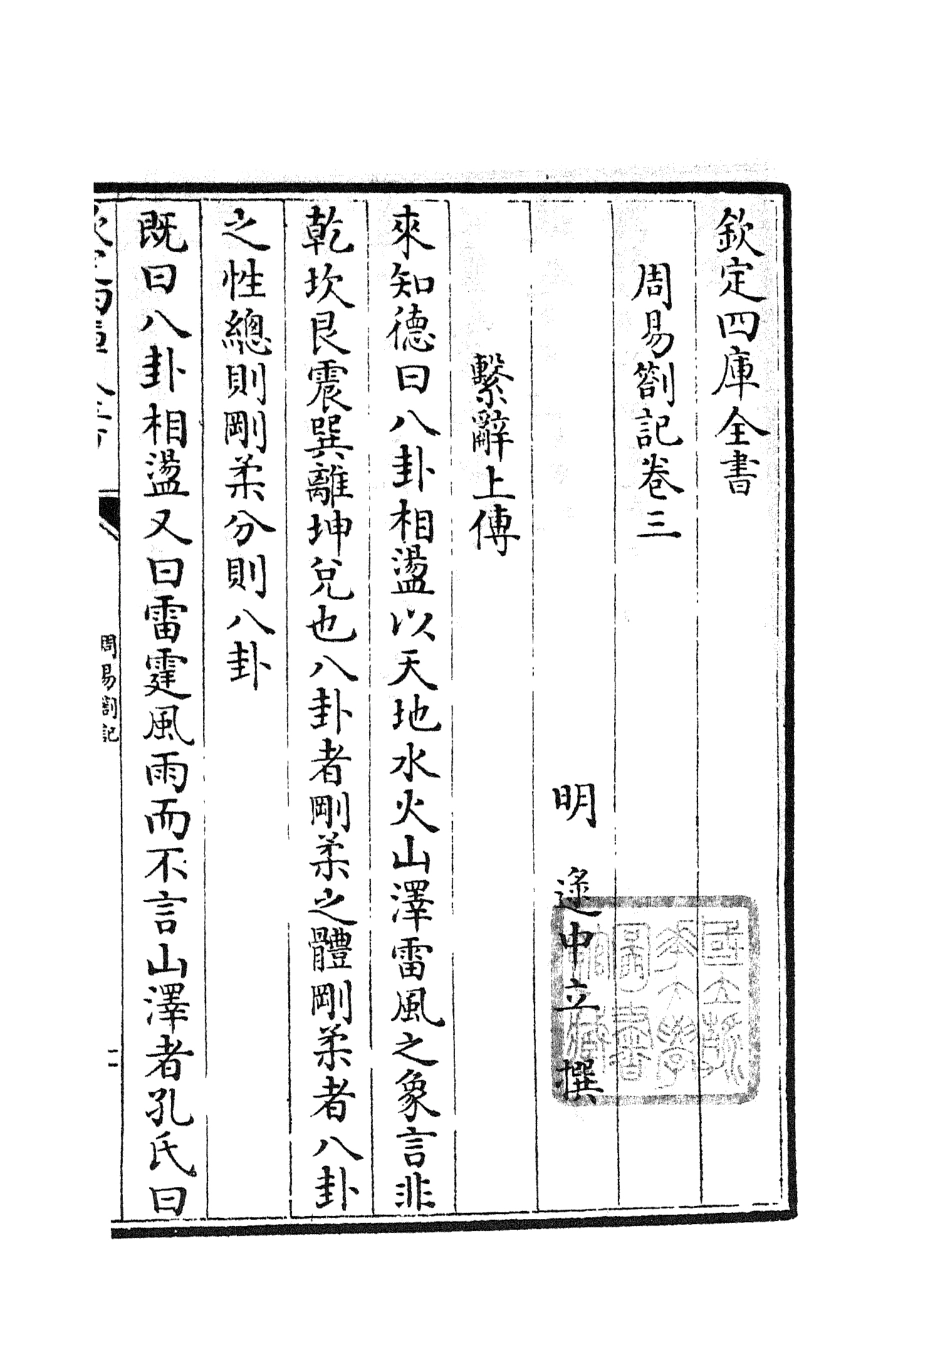 欽定四庫全書
周易劄記卷三
明 逯中立 撰
繫辭上傳
來知德曰八卦相盪以天地水火山澤雷風之象言非
乾坎艮震巽離坤兌也八卦者剛柔之體剛柔者八卦
之性總則剛柔分則八卦
既曰八卦相盪又曰雷霆風雨而不言山澤者孔氏曰
周易劄記